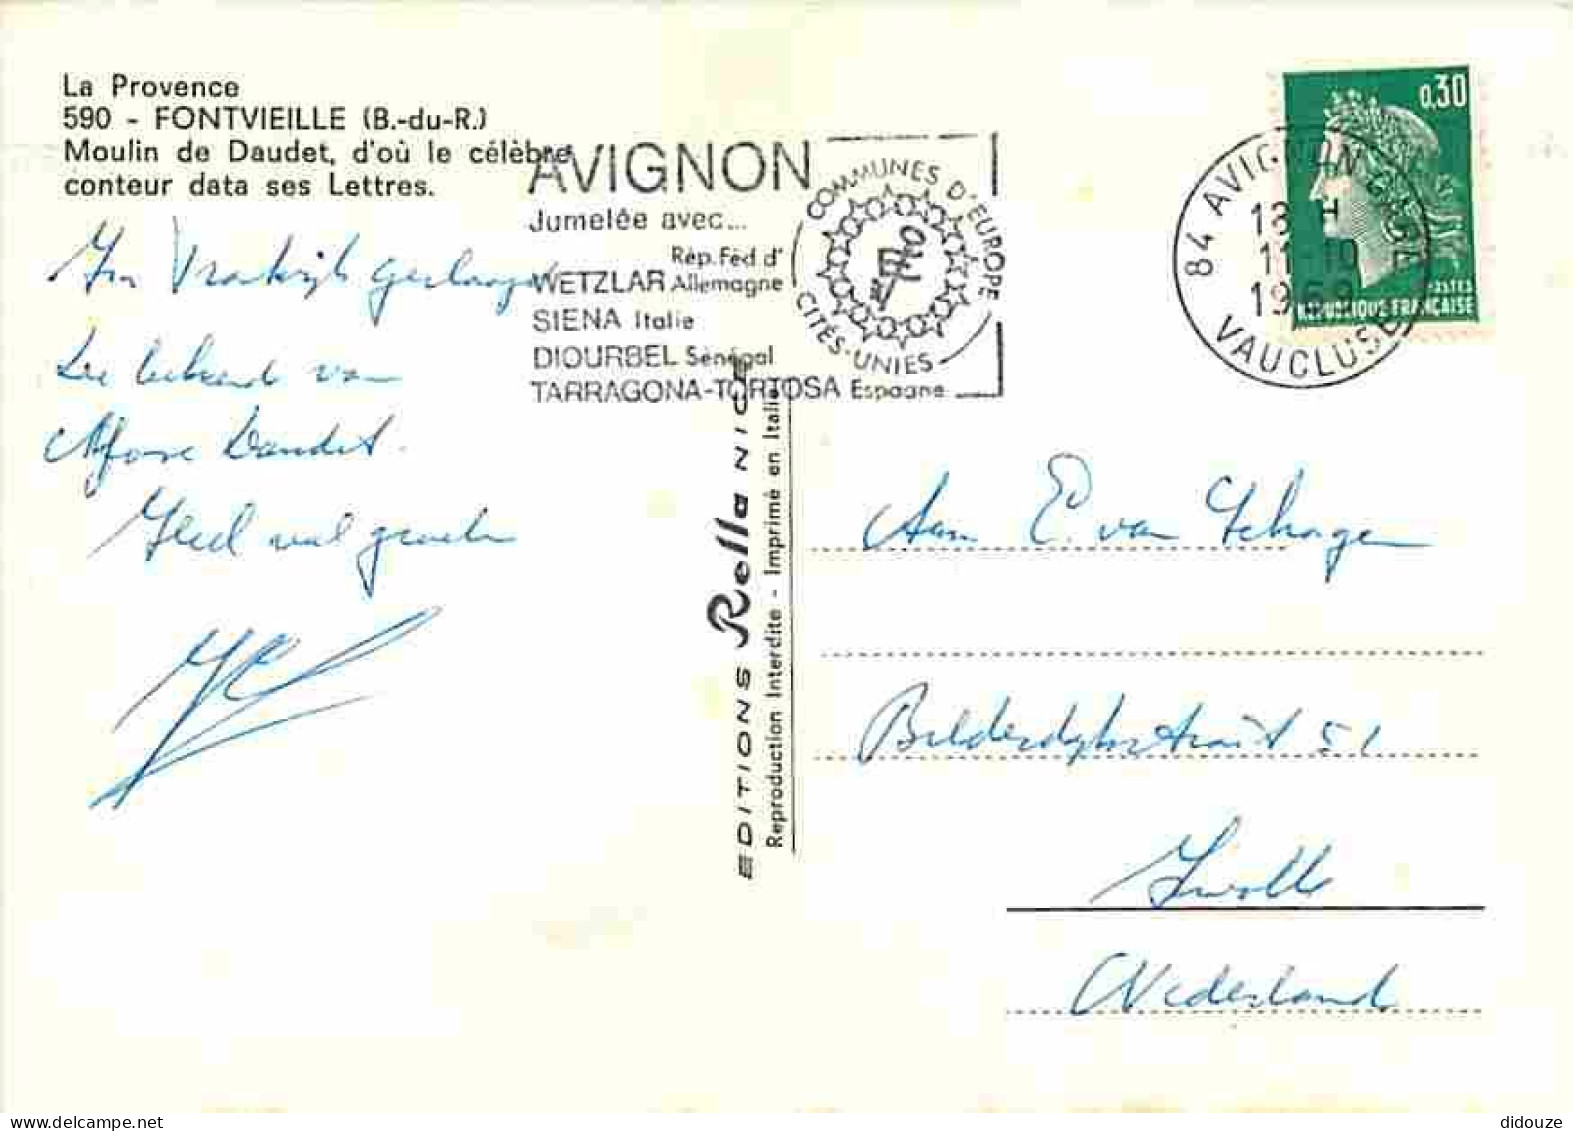 La Provence
590 - FONTVIEILLE (B.-du-R.)
Moulin de Daudet, d'où le célèbre
conteur data ses Lettres.
In Frankrijk geslaagd
van
Daudet.
Heel veel groeten
AVIGNON
Jumelée avec...
Rép. Féd d'
WETZLAR Allemagne
SIENA Italie
DIOURBEL Sénégal
TARRAGONA-TORTOSA Espagne
COMMUNES D'EUROPE
CITÉS-UNIES
0,30
POSTES
REPUBLIQUE FRANÇAISE
84 AVIGNON GARE
13 H
11-10
1969
VAUCLUSE
EDITIONS Rella NICE
Reproduction Interdite - Imprimé en Italie
Aan E. van Schagen
Bilderdijkstraat 51
Zwolle
Nederland
didouze